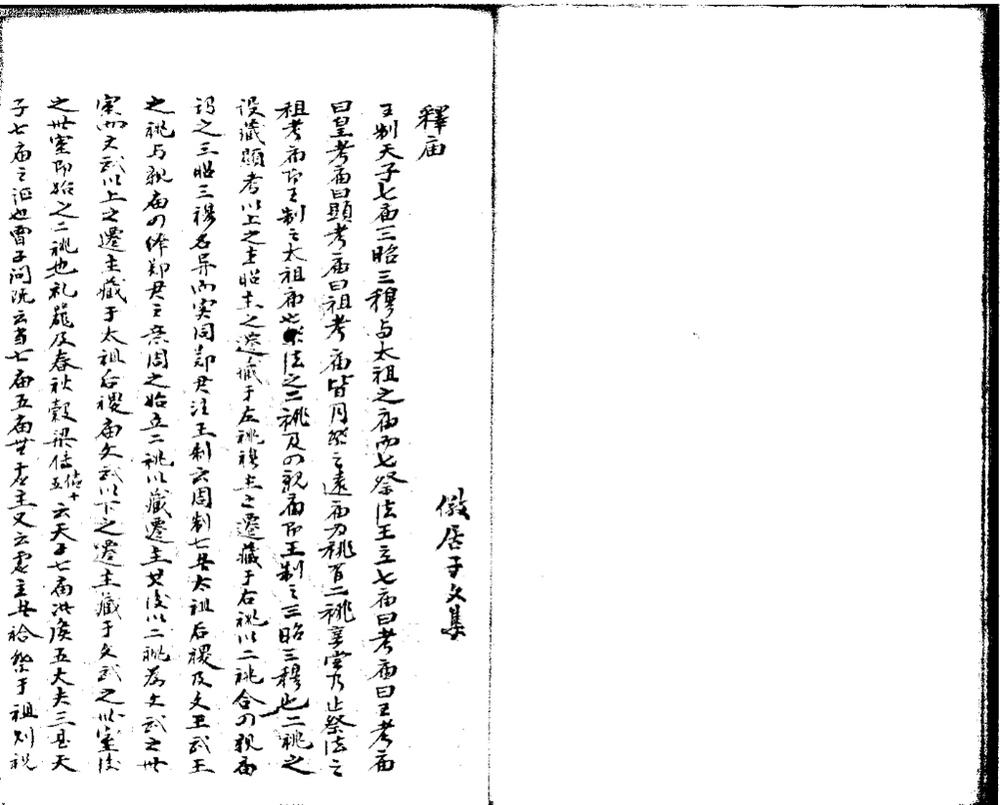 釋庙
儆居子文集
王制天子七庙三昭三穆与太祖之庙而七祭法王立七庙曰考庙曰王考庙
曰皇考庙曰顯考庙曰祖考庙皆月祭之遠庙为祧有二祧享尝乃止祭法之
祖考庙即王制之太祖庙也祭法之二祧及四親庙即王制之三昭三穆也二祧之
设藏顯考以上之主昭主之遷藏于左祧穆主之遷藏于右祧以二祧合四親庙
谓之三昭三穆名异而实同郑君注王制云周制七廿太祖后稷及文王武王
之祧与親庙四伟郑君之意周之始立二祧以藏遷主其後以二祧为文武之世
室而文武以上之遷主藏于太祖后稷庙文武以下之遷主藏于文武之世室後
之世室即始之二祧也礼器及春秋穀梁传僖十五云天子七庙诸侯五大夫三是天
子七庙之证也曾子问既云当七庙五庙世無虚主又云虚主其祫祭于祖则祝